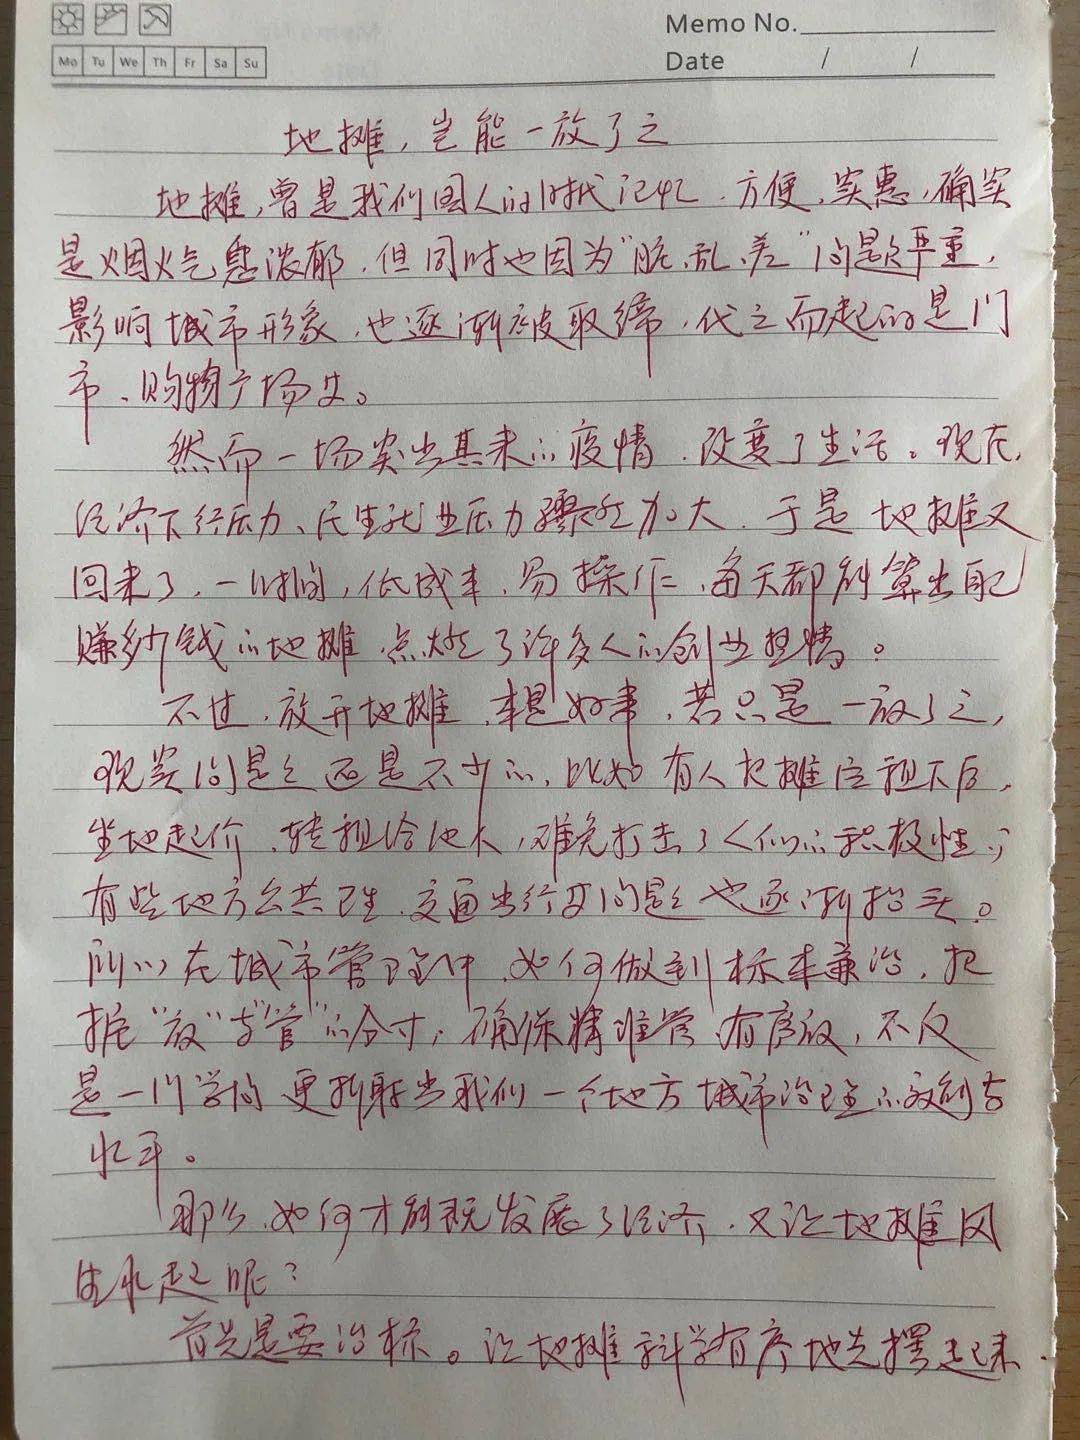 Memo No.
Mo Tu We Th Fr Sa Su
Date / /
地摊,岂能一放了之
地摊,曾是我们国人的时代记忆,方便,实惠,确实
是烟火气息浓郁,但同时也因为“脏、乱、差”问题严重,
影响城市形象,也逐渐被取缔,代之而起的是门
市、购物广场等。
然而一场突出其来的疫情,改变了生活。现在,
经济下行压力、民生就业压力骤然加大,于是地摊又
回来了,一时间,低成本,易操作,每天都能算出自己
赚多少钱的地摊,点燃了许多人的创业热情。
不过,放开地摊,本是好事,若只是一放了之,
现实问题还是不少的,比如有人把摊位租下后,
坐地起价,转租给他人,难免打击了人们的积极性;
有些地方公共卫生,交通出行等问题也逐渐抬头。
所以在城市管理中,如何做到标本兼治,把
握“放”与“管”的分寸,确保精准管,有序放,不仅
是一门学问,更折射出我们一个地方城市治理的效能与
水平。
那么,如何才能既发展了经济,又让地摊风
生水起呢?
首先是要治标。让地摊科学有序地先摆起来.